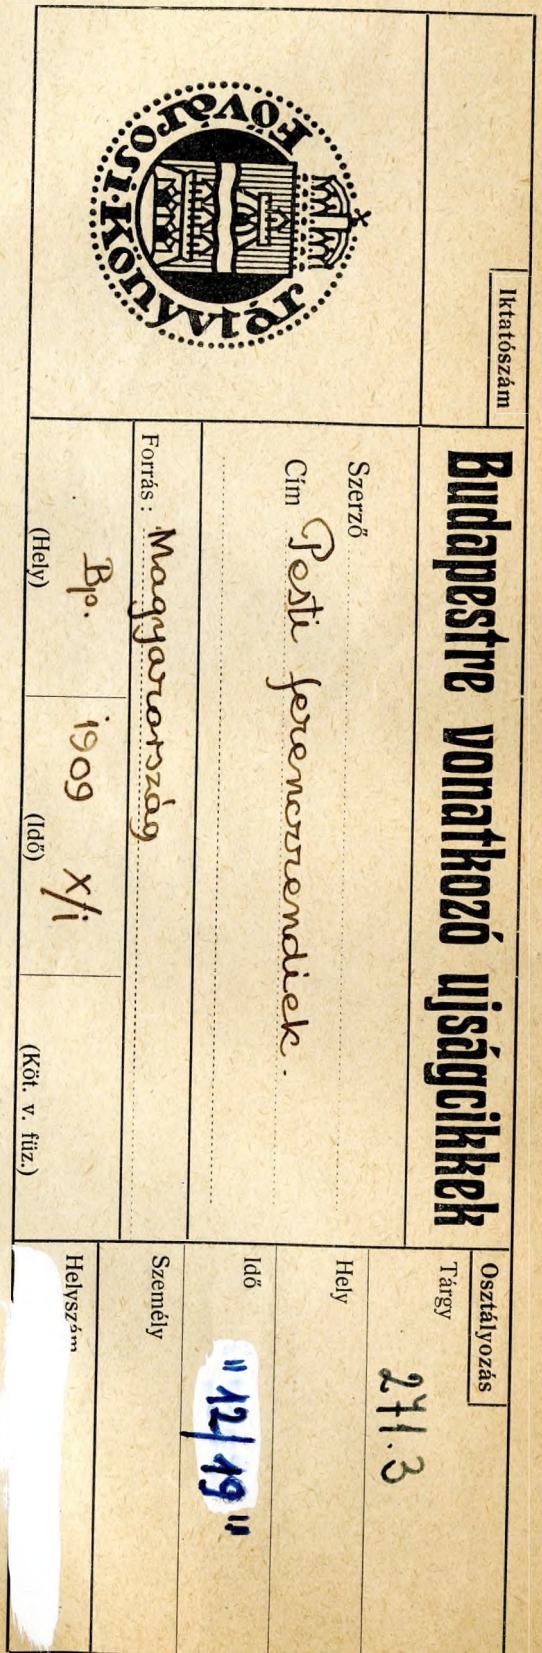 Iktatószám
Fővárosi Könyvtár
Budapestre vonatkozó ujságcikkek
Szerző
Cím Pesti ferenczrendiek.
Forrás: Magyarország
Bp. 1909 X/1
(Hely) (Idő) (Köt. v. füz.)
Osztályozás
Tárgy 271.3
Hely
Idő "12/19"
Személy
Helyszám